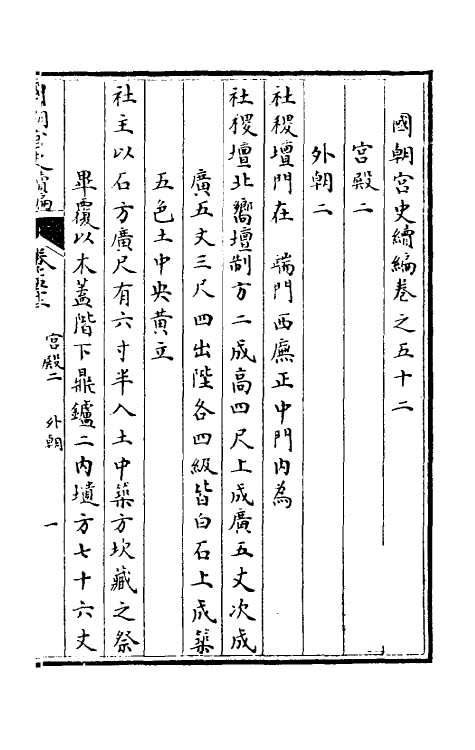 國朝宮史續編卷之五十二
宮殿二
外朝二
社稷壇門在　端門西廡正中門內為
社稷壇北嚮壇制方二成高四尺上成廣五丈次成
廣五丈三尺四出陛各四級皆白石上成築
五色土中央黃立
社主以石方廣尺有六寸半入土中築方坎藏之祭
畢覆以木蓋階下鼎鑪二內壝方七十六丈
國朝宮史續編
卷五十二
宮殿二　外朝
一